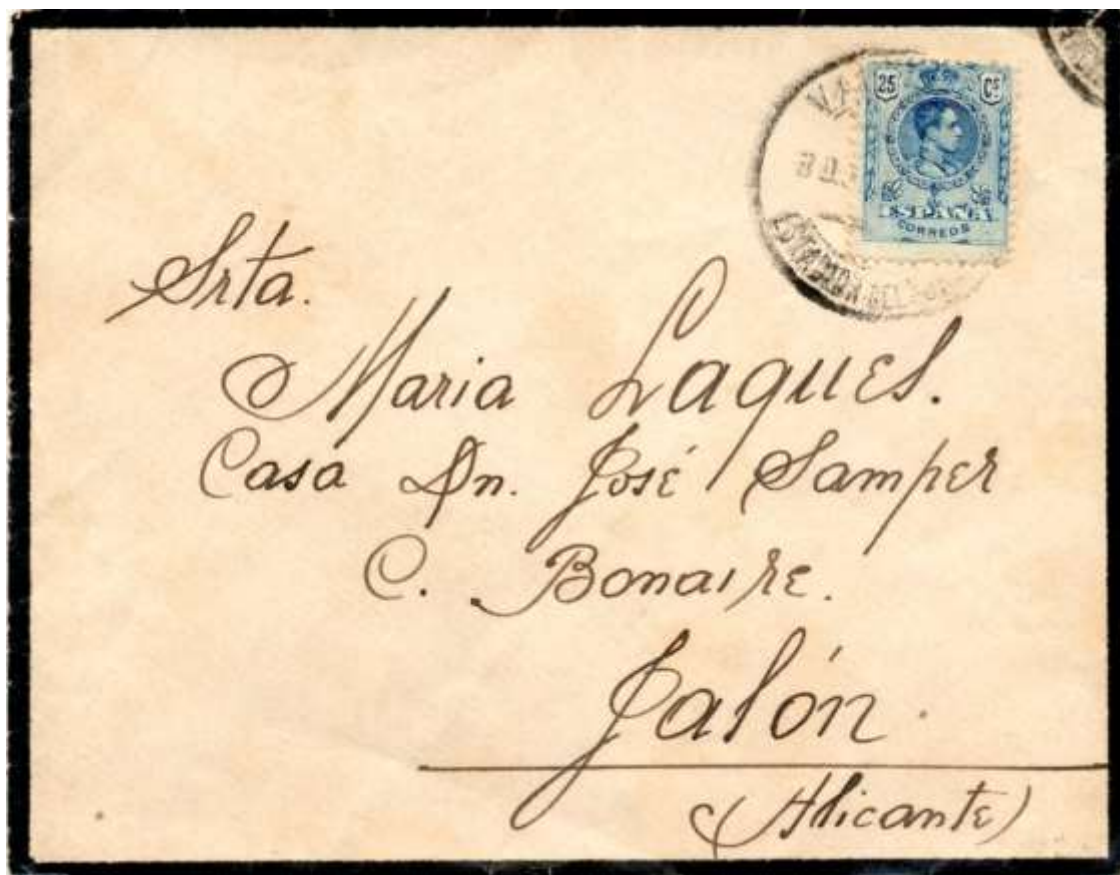 25 Cs
ESPAÑA
CORREOS
ESTACION DEL
Srta.
Maria Laques.
Casa Dn. José Samper
C. Bonaire.
Jalón.
(Alicante)